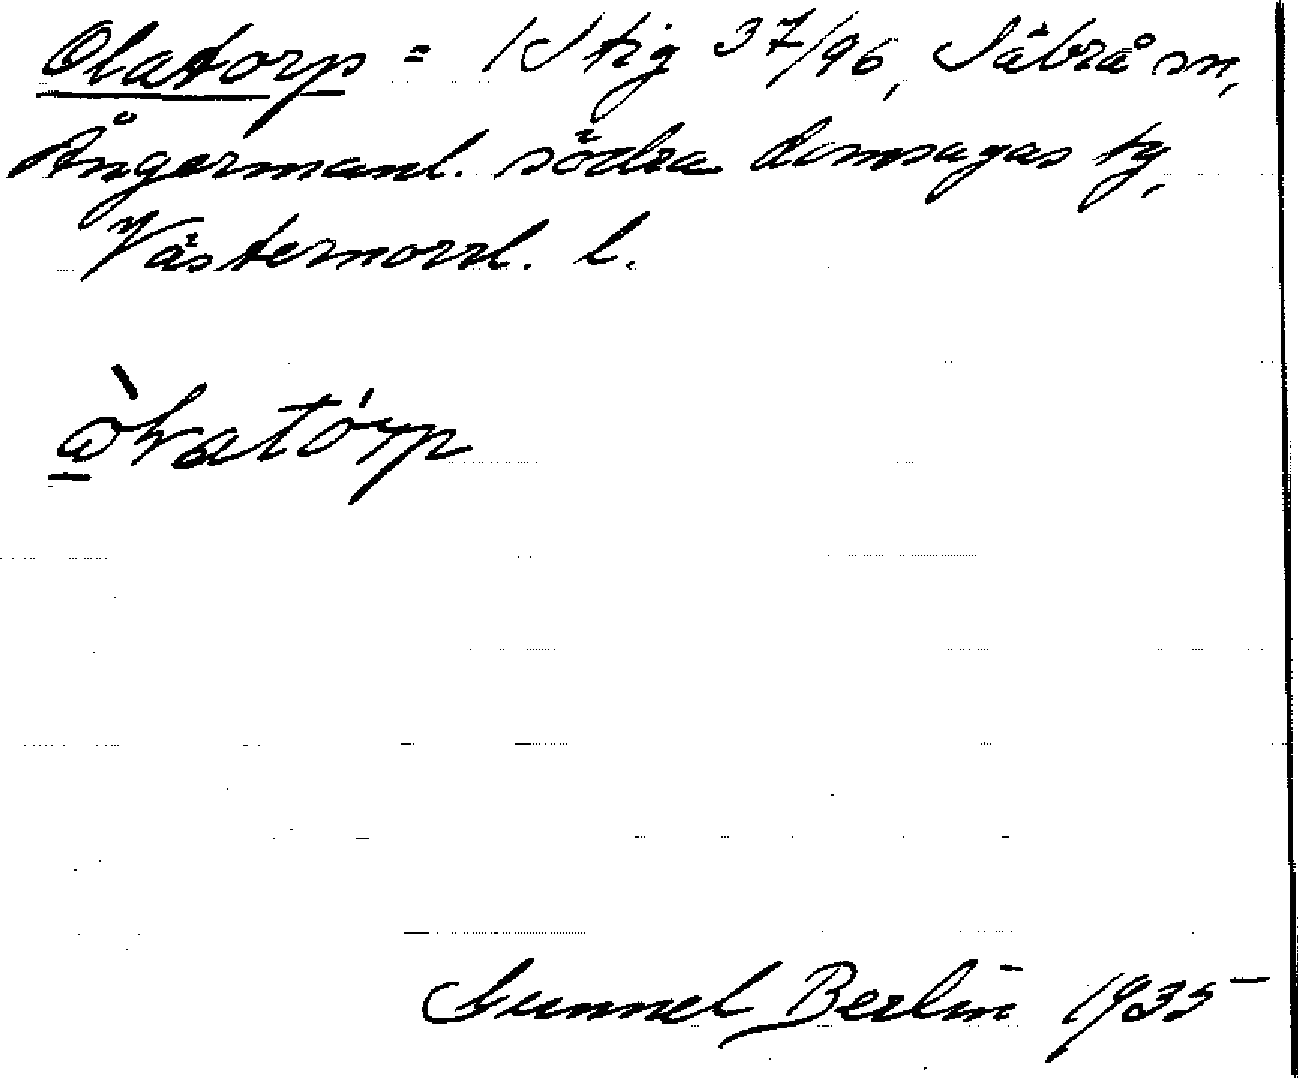 Olatorp = 1 Stig 37/96, Säbrå sn,
Ångermanl. södra domsagas tg,
Västernorrl. l.
Gunnel Berlin 1935